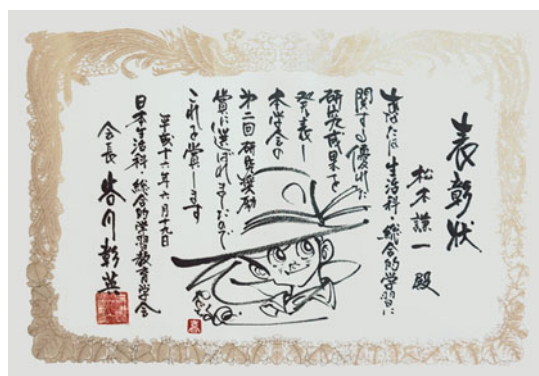 表彰状
松本謙一 殿
あなたは生活科・総合的学習に
関する優れた
研究成果を
発表し
本学会の
第二回研究奨励
賞に選ばれましたので
これを賞します
平成十六年六月十九日
日本生活科・総合的学習教育学会
会長 谷川彰英